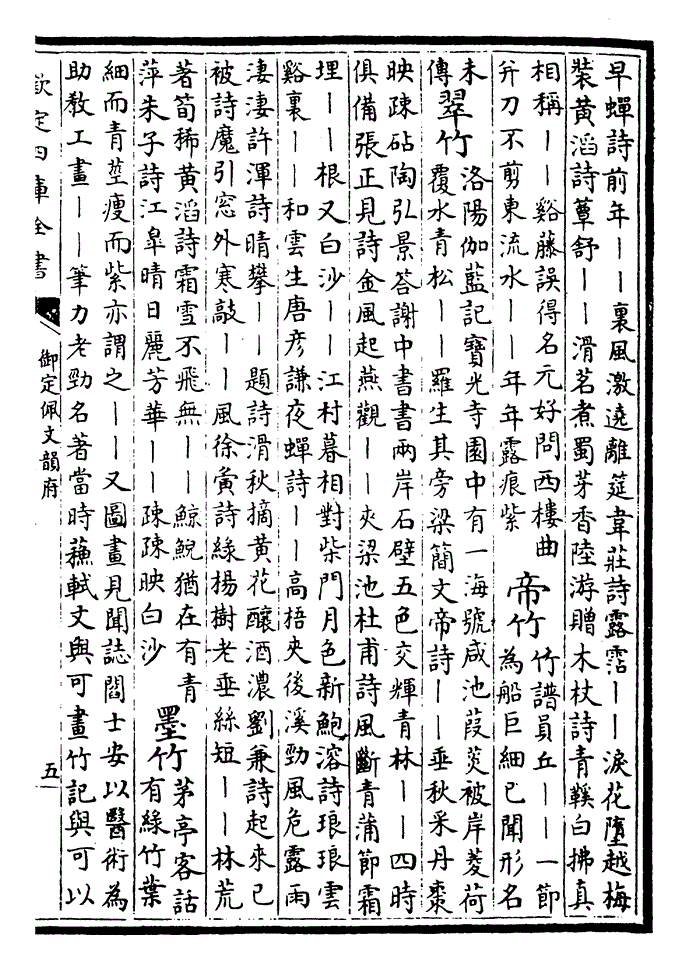 早蟬詩前年｜｜裏風激遶離筵韋莊詩露霑｜｜淚花墮越梅
裝黃滔詩蕈舒｜｜滑茗煮蜀芽香陸游贈木杖詩青鞵白拂真
相稱｜｜谿藤誤得名元好問西樓曲
并刀不剪東流水｜｜年年露痕紫
帝竹
竹譜員丘｜｜一節
為船巨細已聞形名
未
傳
翠竹
洛陽伽藍記寶光寺園中有一海號咸池葭菼被岸菱荷
覆水青松｜｜羅生其旁梁簡文帝詩｜｜垂秋采丹棗
映疎砧陶弘景答謝中書書兩岸石壁五色交輝青林｜｜四時
俱備張正見詩金風起燕觀｜｜夾梁池杜甫詩風斷青蒲節霜
埋｜｜根又白沙｜｜江村暮相對柴門月色新鮑溶詩琅琅雲
谿裏｜｜和雲生唐彥謙夜蟬詩｜｜高梧夾後溪勁風危露雨
淒淒許渾詩晴攀｜｜題詩滑秋摘黃花釀酒濃劉兼詩起來已
被詩魔引窓外寒敲｜｜風徐夤詩綠楊樹老垂絲短｜｜林荒
著筍稀黃滔詩霜雪不飛無｜｜鯨鯢猶在有青
萍朱子詩江臯晴日麗芳華｜｜疎疎映白沙
墨竹
茅亭客話
有綠竹葉
細而青莖瘦而紫亦謂之｜｜又圖畫見聞誌閻士安以醫術為
助教工畫｜｜筆力老勁名著當時蘓軾文與可畫竹記與可以
欽定四庫全書
御定佩文韻府
五